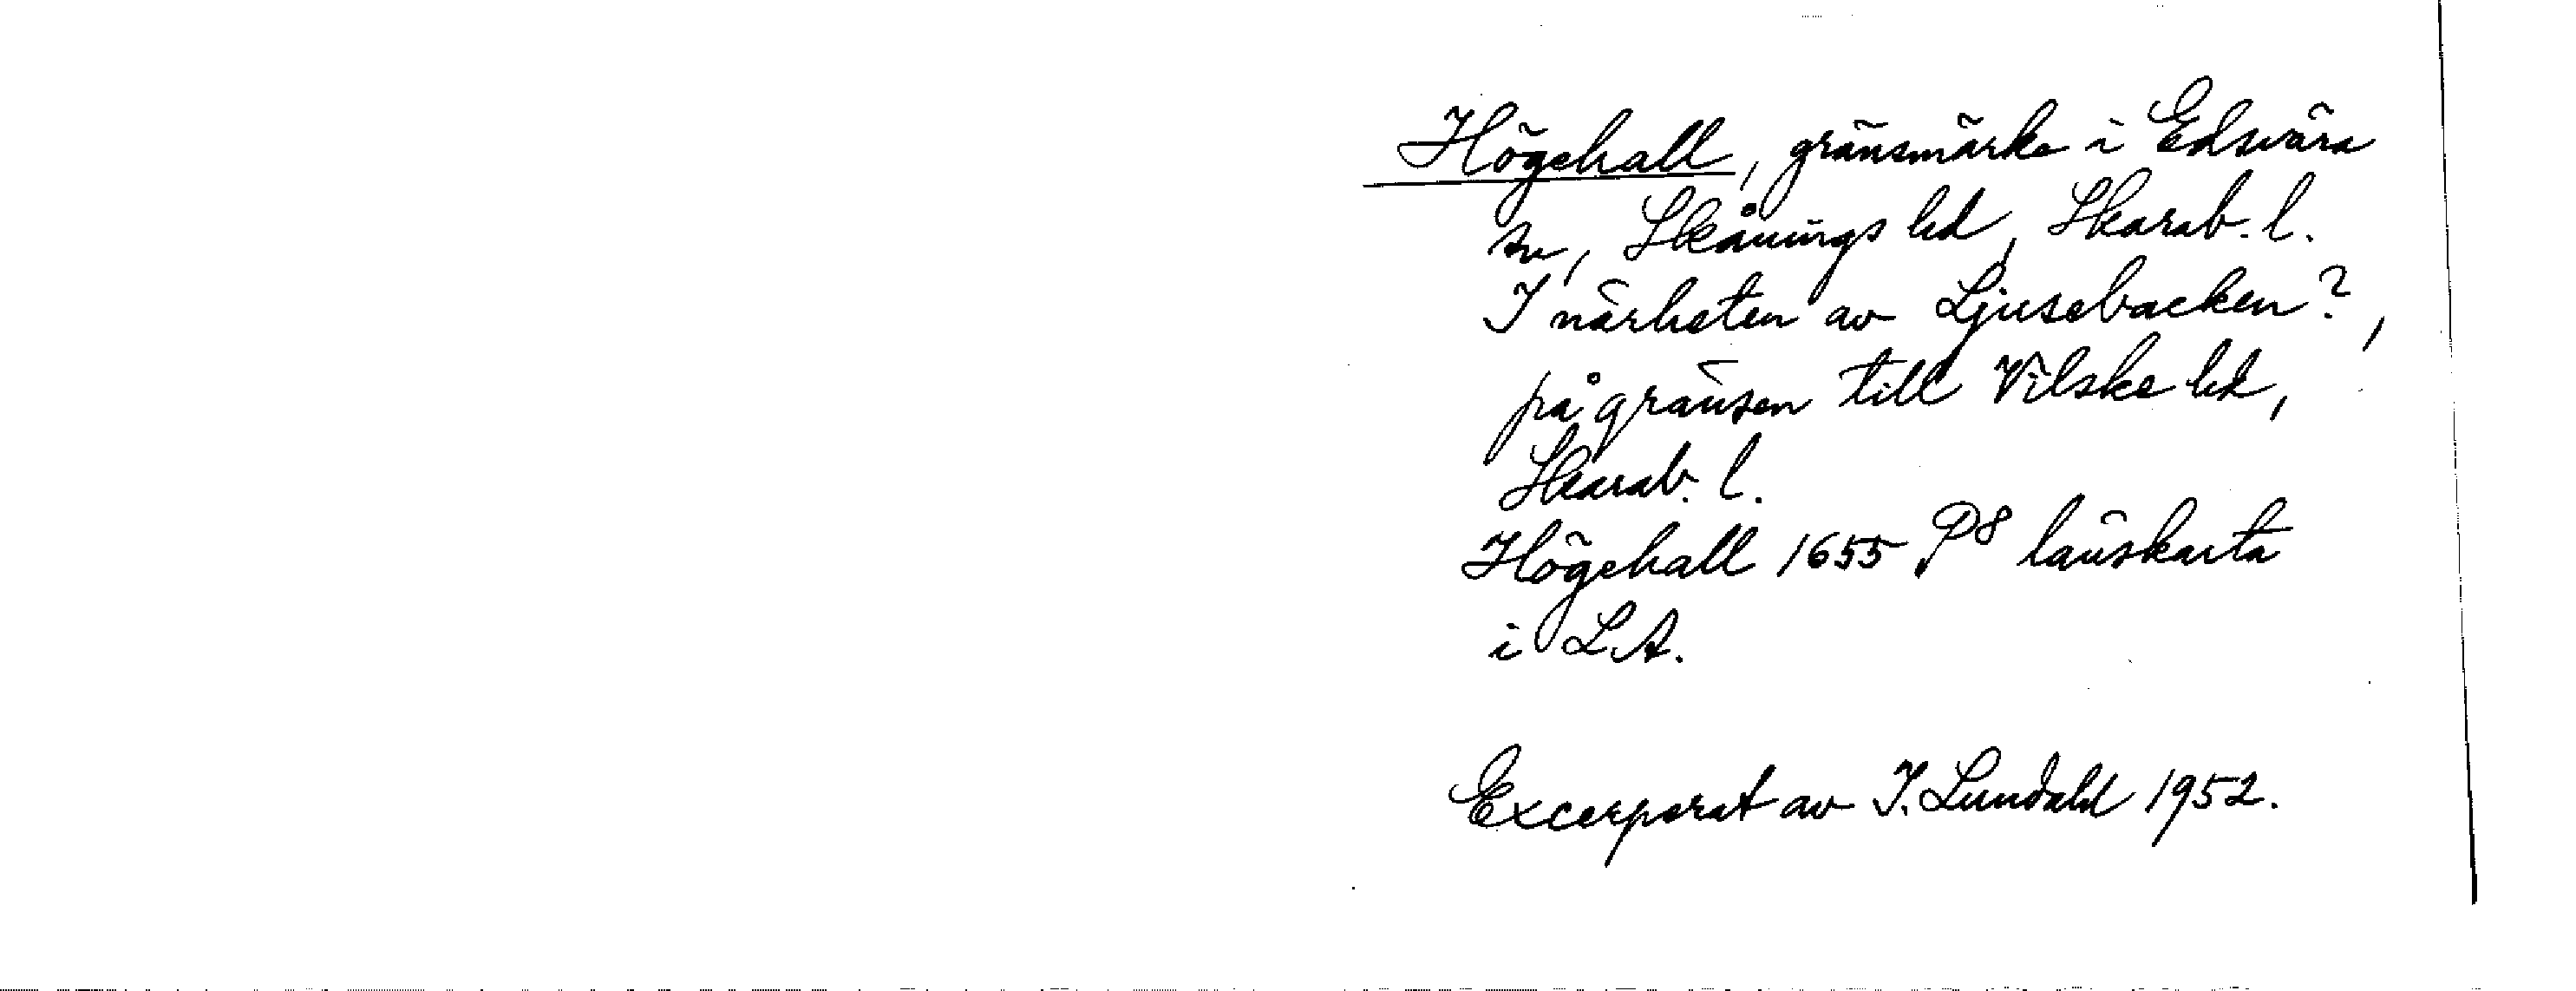 Högehall, gränsmärke i Edsvära
sn, Skånings hd, Skarab. l.
I närheten av Ljusebacken?,
på gränsen till Vilske hd,
Skarab. l.
Högehall 1655 P8 länskarta
i LA.
Excerperat av I. Lundahl 1952.